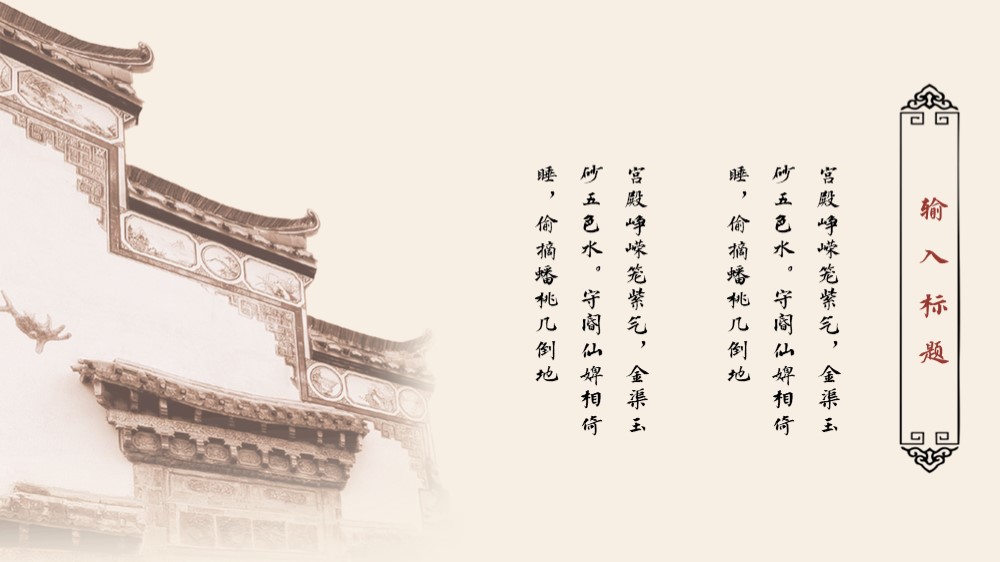 输入标题
宫殿峥嵘笼紫气，金渠玉
砂五色水。守阍仙婢相倚
睡，偷摘蟠桃几倒地
宫殿峥嵘笼紫气，金渠玉
砂五色水。守阍仙婢相倚
睡，偷摘蟠桃几倒地